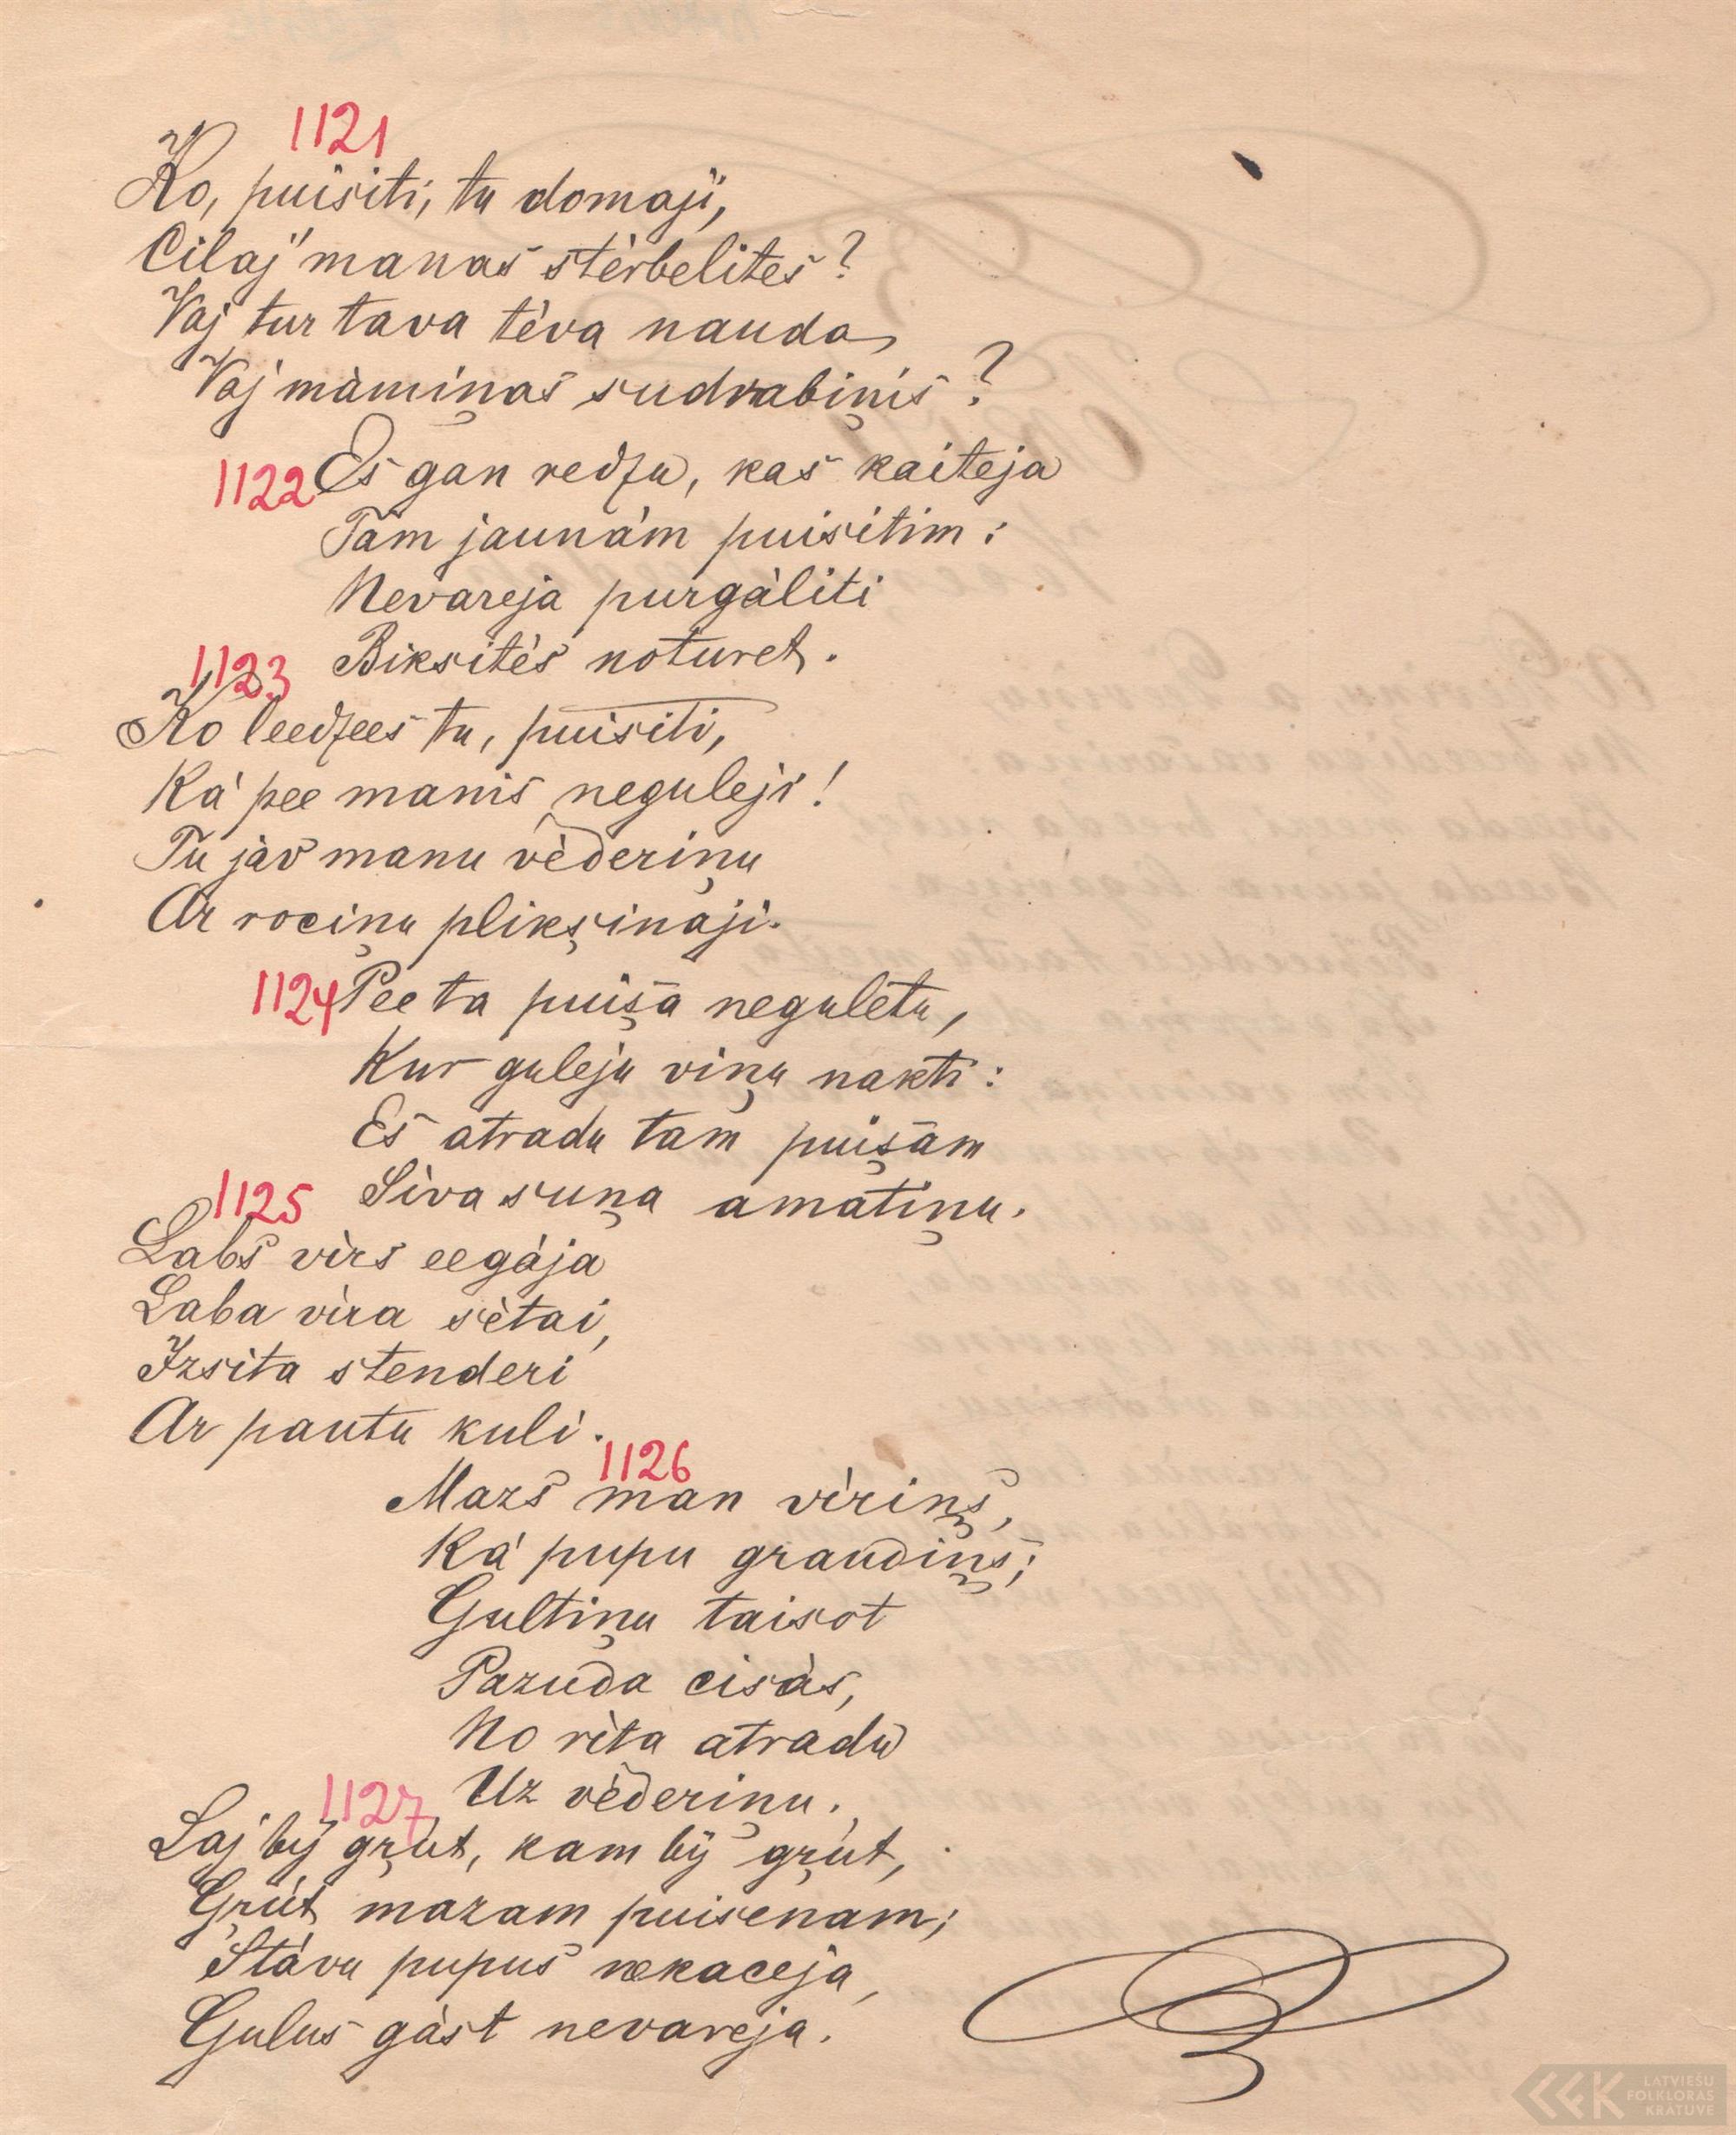 1121
Ko, puisiti, tu domaji,
Cilaj' manas stèrbelites?
Vaj tur tava tèva nauda,
Vaj màmiņas sudrabiņis?
1122 Es gan redzu, kas kaiteja
Tam jaunàm puisitim:
Nevareja purgàliti
Biksitès noturet.
1123
Ko leedzees tu, puisiti,
Kà pee manis neguleji!
Tu jav manu vèderiņu
Ar rociņu plikşinaji.
1124 Pee ta puişa neguletu,
Kur guleju viņu nakti:
Es atradu tam puişam
Siva suņa amatiņu.
1125
Labs vìrs eegàja
Laba vìra sètai,
Izsita stenderi
Ar pautu kuli.
1126
Mazs man vìriņş,
Kà pupu graudiņş;
Gultiņu taisot
Pazuda cisàs,
No rìta atradu
Uz vèderiņu.
1127
Laj bÿ gŗùt, kam bÿ gŗùt,
Gŗùt mazam puisenam;
Stàvu pupus nekaceja,
Gulus gàst nevareja.
LATVIEŠU
FOLKLORAS
KRĀTUVE